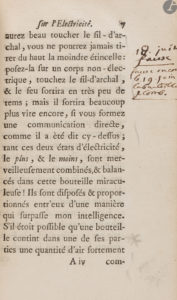 sur l'Electricité. 7
aurez beau toucher le fil-d'ar-
chal, vous ne pourrez jamais ti-
rer du haut la moindre étincelle:
posez-la sur un corps non-élec-
trique, touchez le fil-d'archal,
& le feu sortira en très peu de
tems; mais il sortira beaucoup
plus vite encore, si vous formez
une communication directe,
comme il a été dit cy-dessus:
tant ces deux états d'électricité,
le plus, & le moins, sont mer-
veilleusement combinés, & balan-
cés dans cette bouteille miracu-
leuse! Ils sont disposés & propor-
tionnés entr'eux d'une maniére
qui surpasse mon intelligence.
S'il étoit possible qu'une bouteil-
le contint dans une de ses par-
ties une quantité d'air fortement
A iv com-
18 juin
fausse
le 19 juin